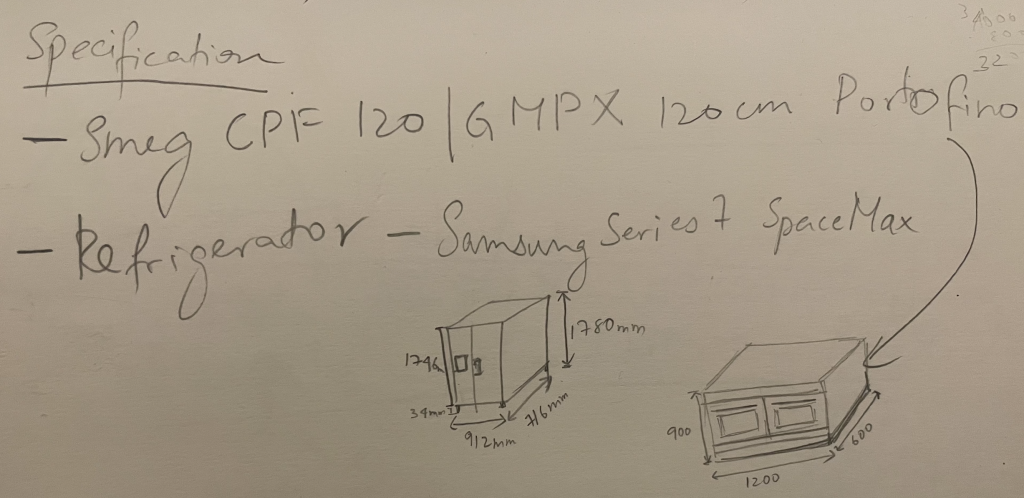 Specification
- Smeg CPF 120 | GMPX 120cm Portofino
- Refrigerator - Samsung Series 7 SpaceMax
1780mm
1746
34mm
716mm
912mm
900
600
1200